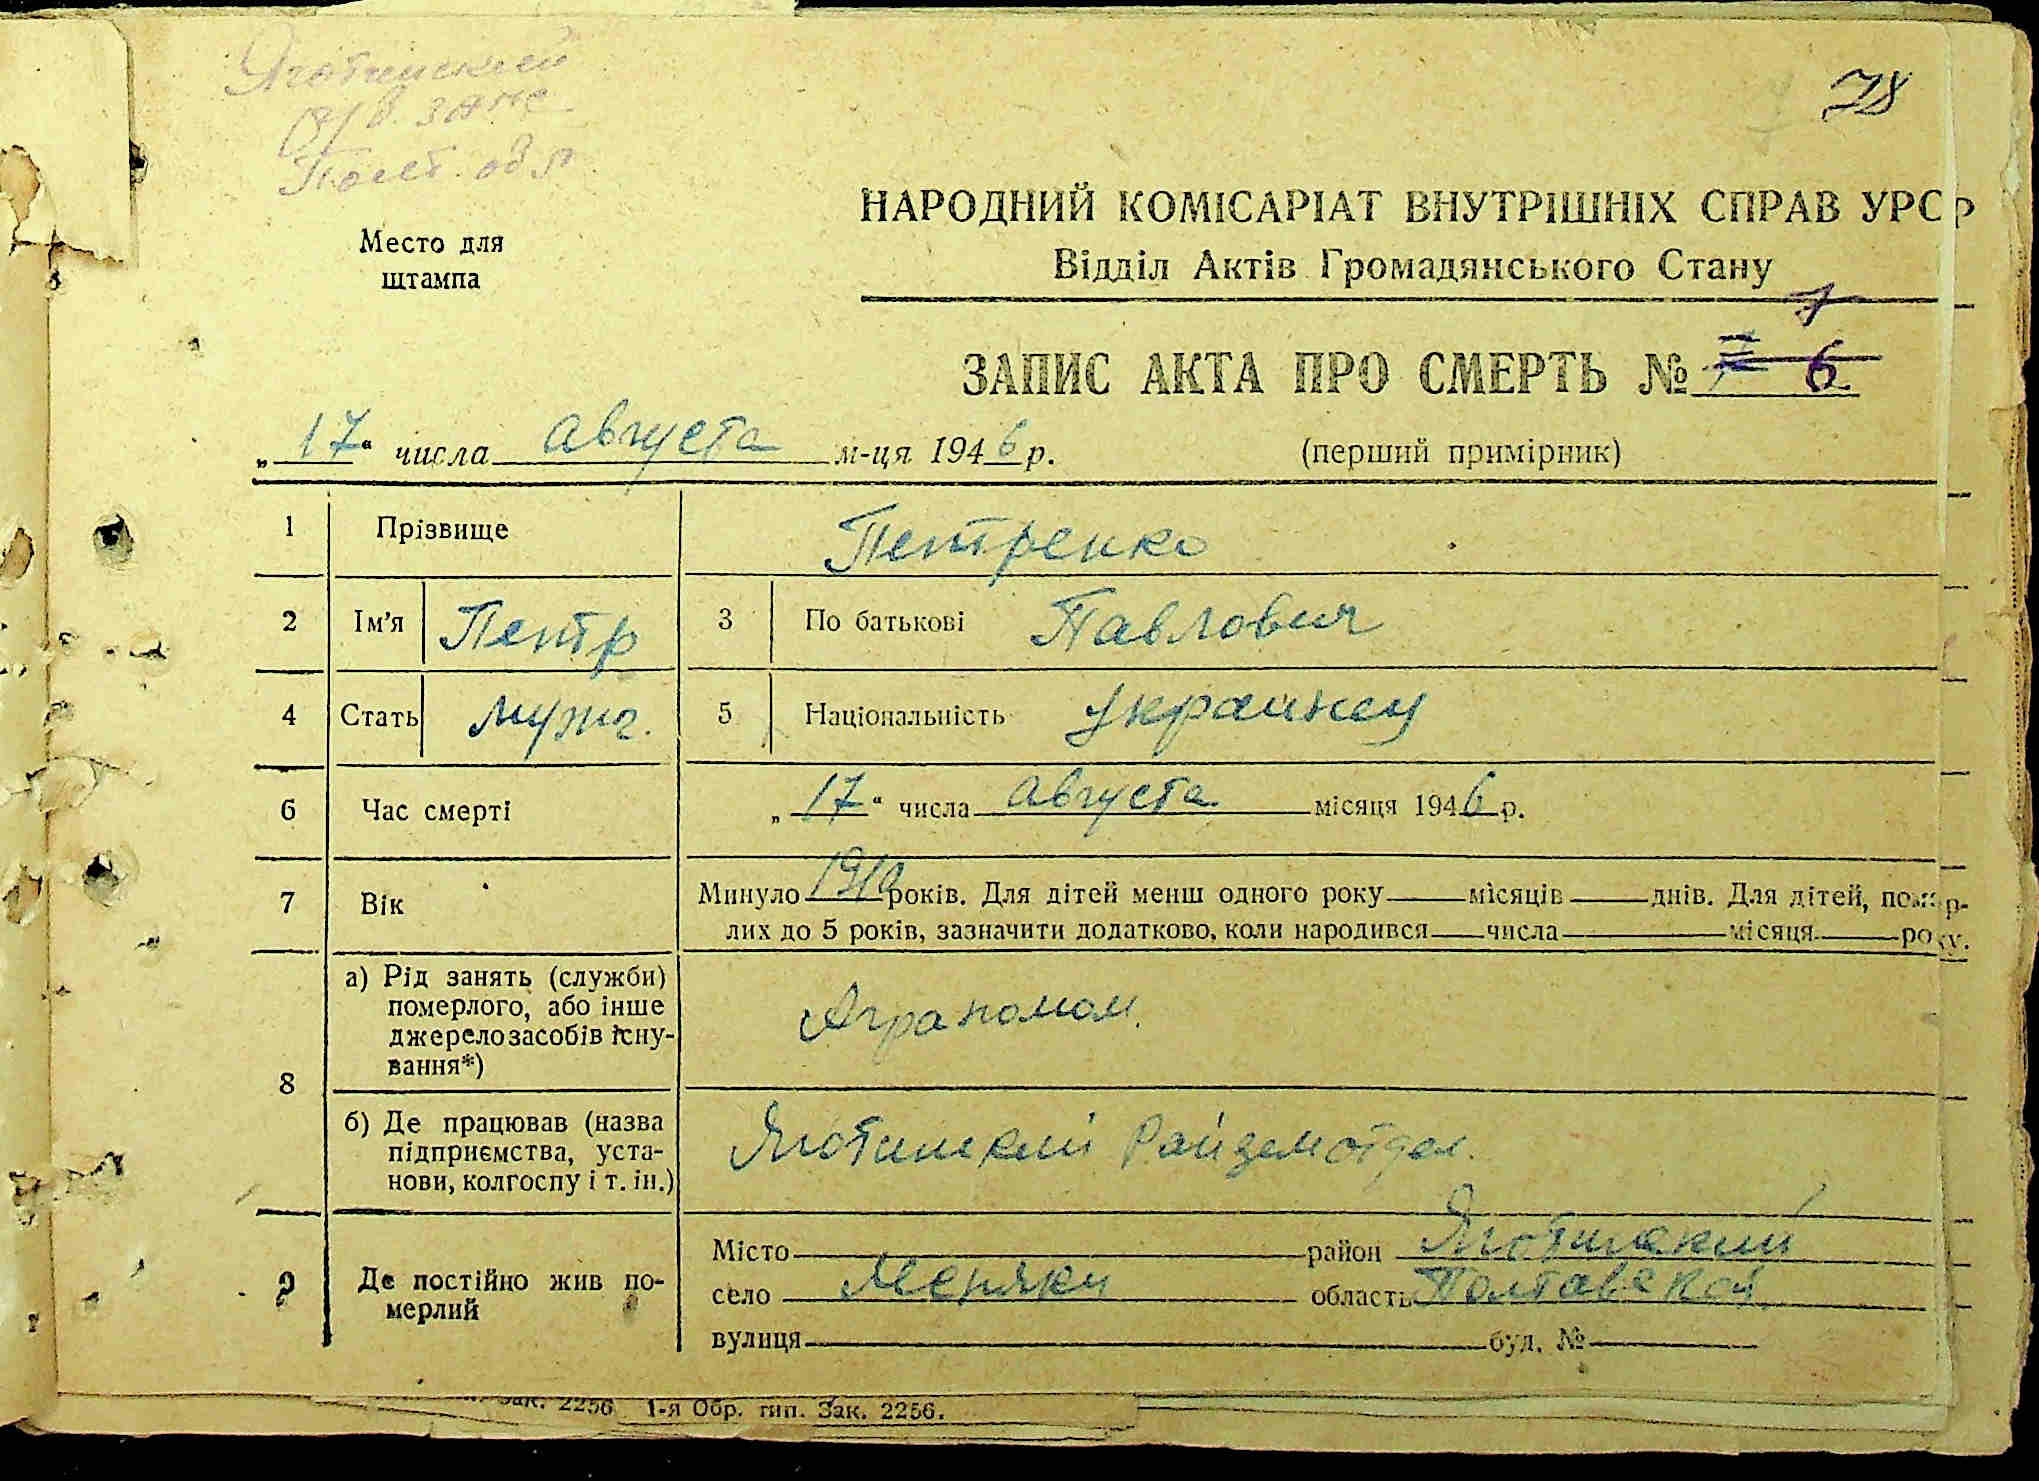 Яготинский
р/б. загс
Полт. обл
78
Место для
штампа
НАРОДНИЙ КОМІСАРІАТ ВНУТРІШНІХ СПРАВ УРСР
Відділ Актів Громадянського Стану
1
ЗАПИС АКТА ПРО СМЕРТЬ № 6
„17“ числа августа м-ця 1946 р. (перший примірник)
1 Прізвище Петренко
2 Ім'я Петр 3 По батькові Павлович
4 Стать муж. 5 Національність украинец
6 Час смерті „17“ числа августа місяця 1946 р.
7 Вік Минуло 1910 років. Для дітей менш одного року місяців днів. Для дітей, помер-
лих до 5 років, зазначити додатково, коли народився числа місяця року.
8 а) Рід занять (служби)
померлого, або інше
джерело засобів існу-
вання*)
Аграномом.
б) Де працював (назва
підприємства, уста-
нови, колгоспу і т. ін.)
Яготинский Райземотдел.
9 Де постійно жив по-
мерлий
Місто район Яготинский
село область Полтавской
вулиця буд. №
Зак. 2256 1-я Обр. тип. Зак. 2256.